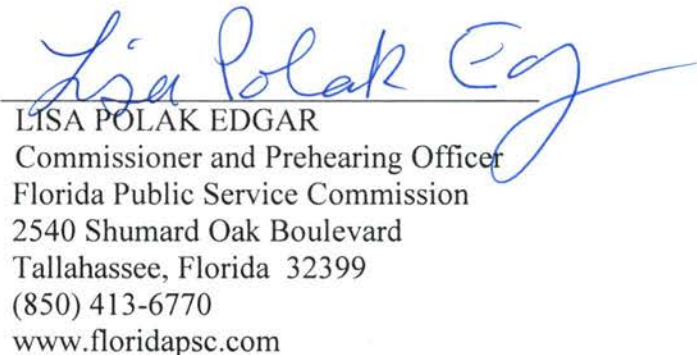 Lisa Polak Edg
LISA POLAK EDGAR
Commissioner and Prehearing Officer
Florida Public Service Commission
2540 Shumard Oak Boulevard
Tallahassee, Florida 32399
(850) 413-6770
www.floridapsc.com